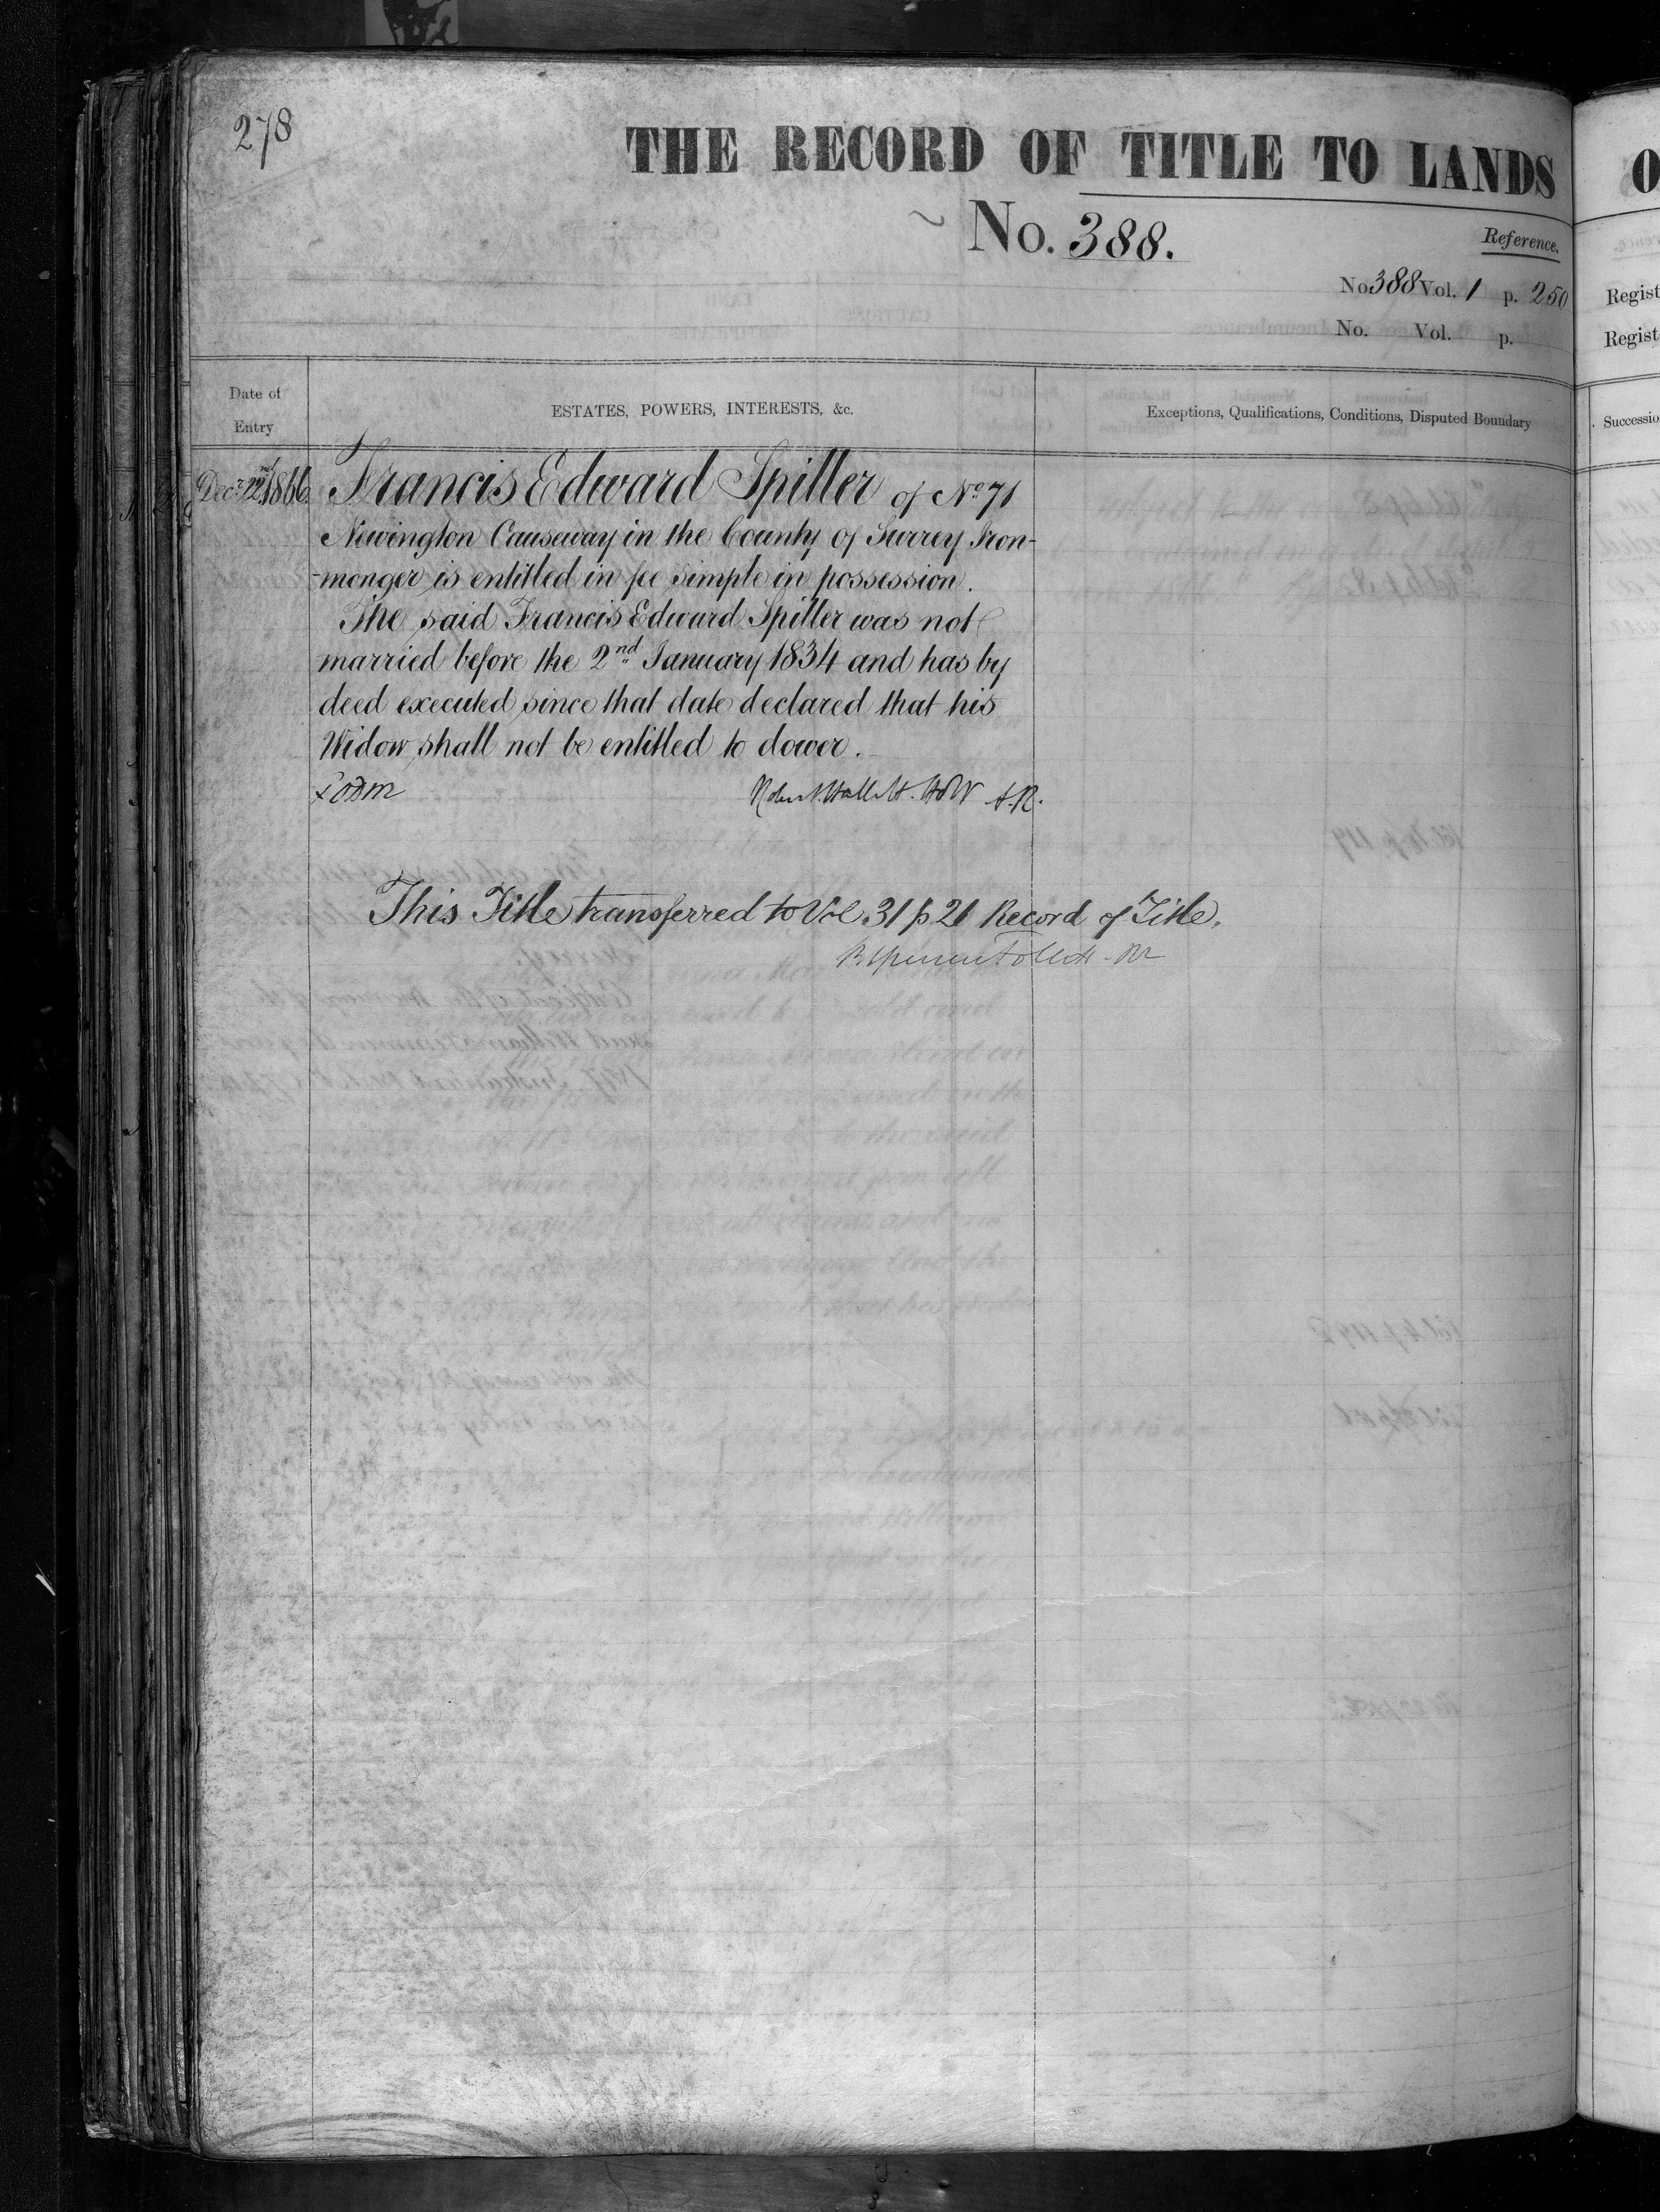 278
THE RECORD OF TITLE TO LANDS
No. 388.
Reference.
No 388 Vol. 1 p. 250
No. Vol. p.
Date of
Entry
ESTATES, POWERS, INTERESTS, &c.
Exceptions, Qualifications, Conditions, Disputed Boundary
Francis Edward Spiller of No 71
Newington Causeway in the County of Surrey Iron-
-monger is entitled in fee simple in possession.
The said Francis Edward Spiller was not
married before the 2nd January 1834 and has by
deed executed since that date declared that his
Widow shall not be entitled to dower.
A.R.
This Title transferred to Vol 31 p 26 Record of Title.
O
Regist
Regist
Successio